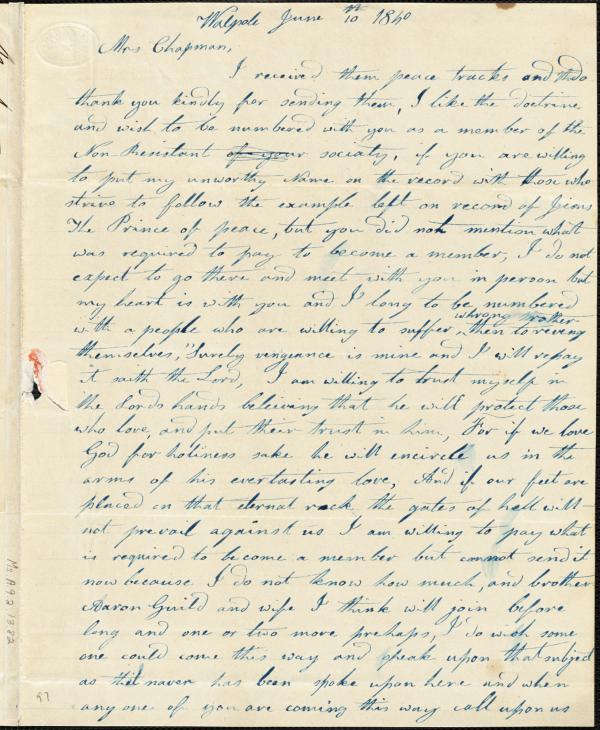 Walpole June th 10 1840
Mrs Chapman,
I received them peace tracks and thdo
thank you kindly for sending them, I like the doctrine
and wish to be numbered with you as a member of the
Non-Resistant of your sociaty, if you are willing
to put my unworthy Name on the record with those who
strive to follow the example left on record of Jesus
The Prince of peace, but you did not mention what
was required to pay to become a member, I do not
expect to go there and meet with you in person but
my heart is with you and I long to be numbered
whrong rather
with a people who are willing to suffer, then to reveng
themselves, "Surely vengeance is mine and I will repay
it saith the Lord, I am willing to trust myself in
the Lords hands beleiveing that he will protect those
who love, and put their trust in him, For if we love
God for holiness sake he will encircle us in the
arms of his everlasting love, And if our feet are
placed on that eternal rock the gates of hell will
not prevail against us I am willing to pay what
is required to become a member but cannot send it
now because I do not know how much, and brother
Aaron Guild and wife I think will join before
long and one or two more prehaps, I do wish some
one could come this way and speak upon that subject
as it naver has been spoke upon here and when
any one of you are coming this way call upon us
Ms.A.9.2.13.82
97